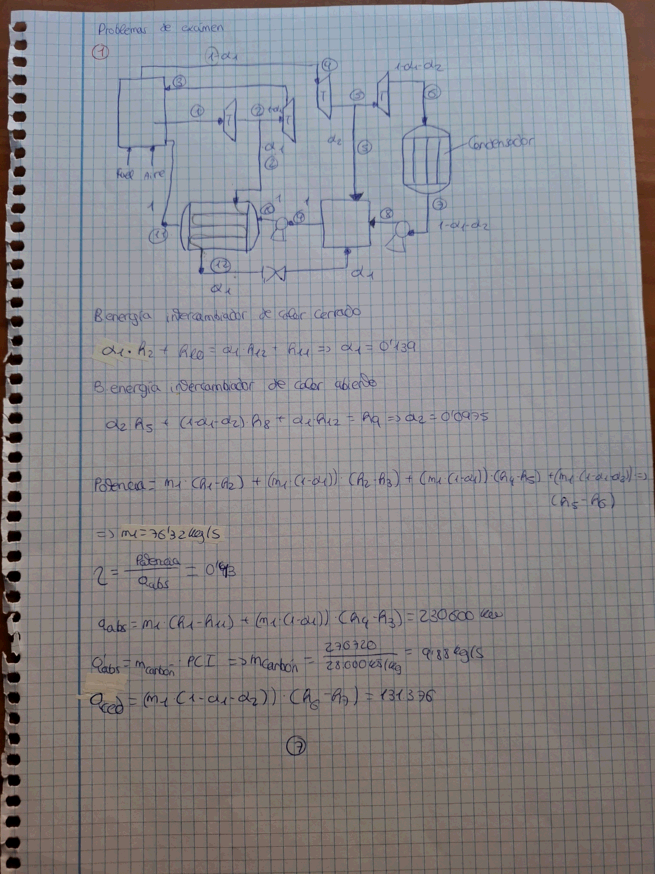 Problemas de exámen
①
1-α1
④
1-α1-α2
③
① T ② 1-α1 T
T ⑤ T ⑥
α2
α1
②
⑤
Condensador
Fuel Aire
1
⑪
⑩ 1
⑨ 1
⑧
⑦
1-α1-α2
⑫
α1
α1
B energía intercambiador de calor cerrado
α1·h2 + h10 = α1 h12 + h11 => α1 = 0'139
B energía intercambiador de calor abierto
α2 h5 + (1-α1-α2)·h8 + α1 h12 = h9 => α2 = 0'0975
Potencia = m1·(h1-h2) + (m1·(1-α1))·(h2-h3) + (m1·(1-α1))·(h4-h5) + (m1·(1-α1-α2)) =>
(h5-h6)
=> m1 = 76'32 kg/s
η = Potencia / Qabs = 0'43
qabs = m1 (h1-h11) + (m1·(1-α1))·(h4-h3) = 230600 kW
Qabs = mcarbón·PCI => mcarbón = 276720 / 28000 kJ/kg = 9'88 kg/s
Qced = (m1 (1-α1-α2))·(h6-h7) = 131376
⑦